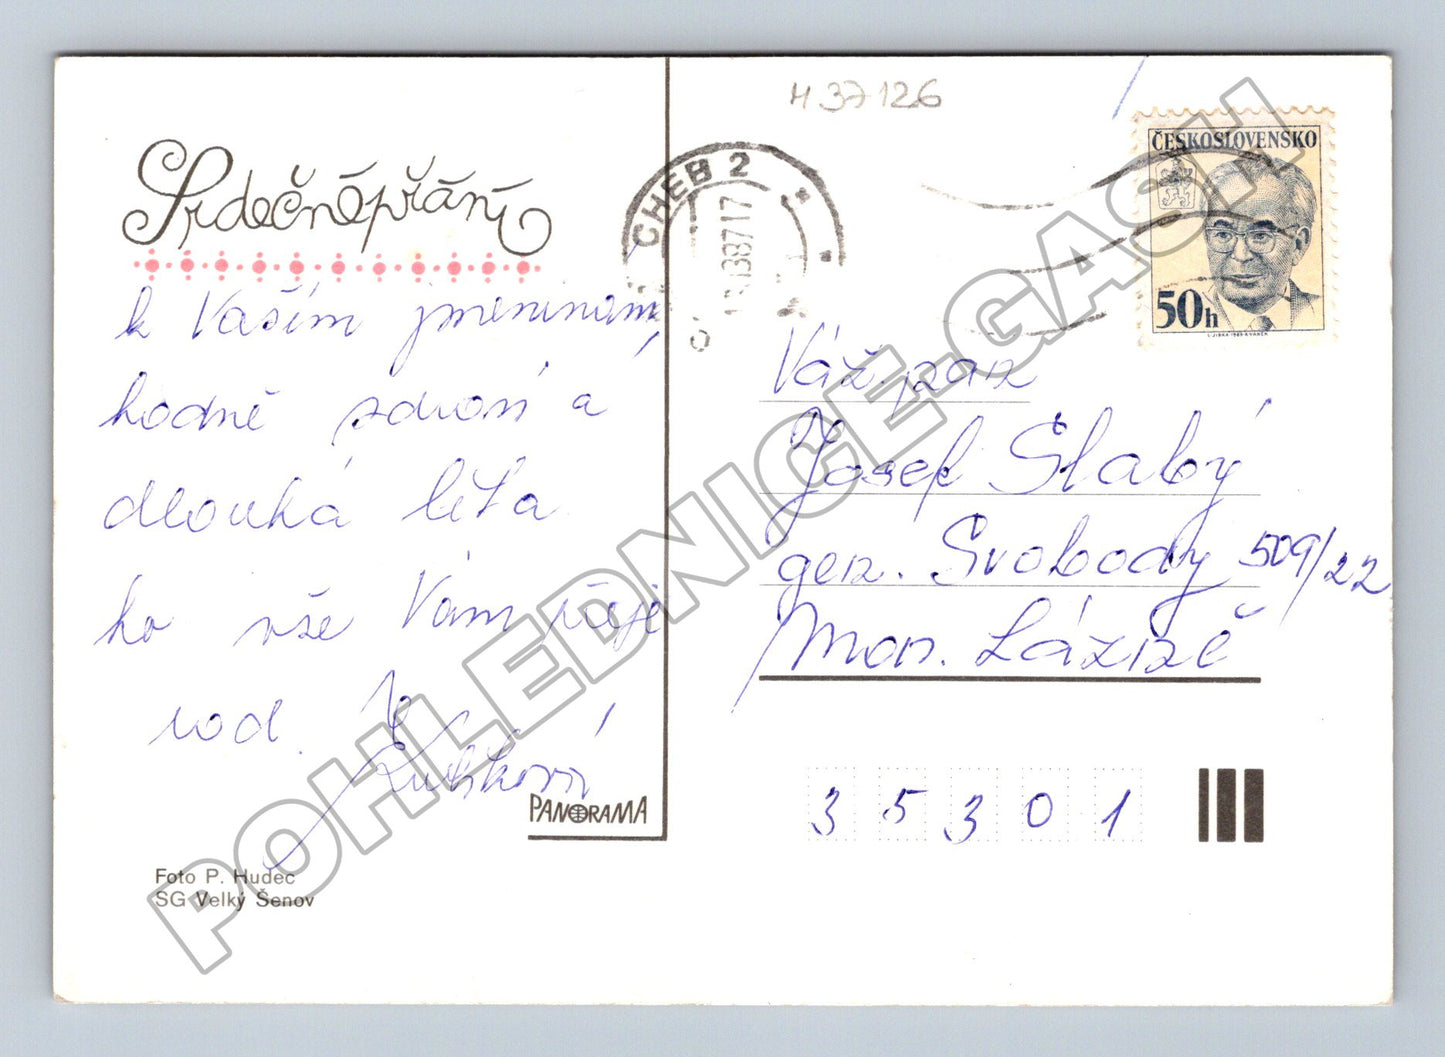 H 37126
Srdečné přání
k Vaším jmeninám,
hodně zdraví a
dlouhá léta
ho vše Vám přeje
rod.
PANORAMA
Foto P. Hudec
SG Velký Šenov
CHEB 2
87 17
ČESKOSLOVENSKO
50h
Váž. pan
Josef Slabý
gen. Svobody 509/22
Mar. Lázně
35301
POHLEDNICE-GASH